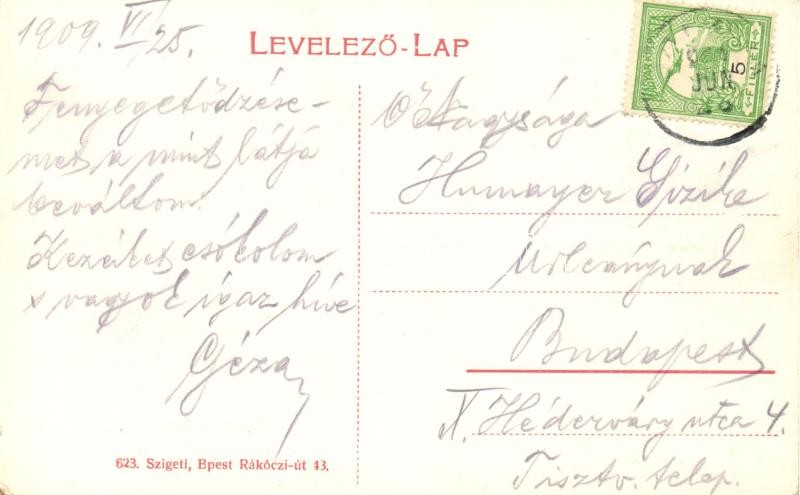 1909. VI/25.
LEVELEZŐ-LAP
Fenyegetődzése-
met a mint látja
beváltom.
Kezeiket csókolom
s vagyok igaz híve
Géza
623. Szigeti, Bpest Rákóczi-út 43.
5
FILLÉR
JUN
Ő Nagysága
Humayer Gizike
Urleánynak
Budapest
X. Hédervány utca 4.
Tisztv. telep.